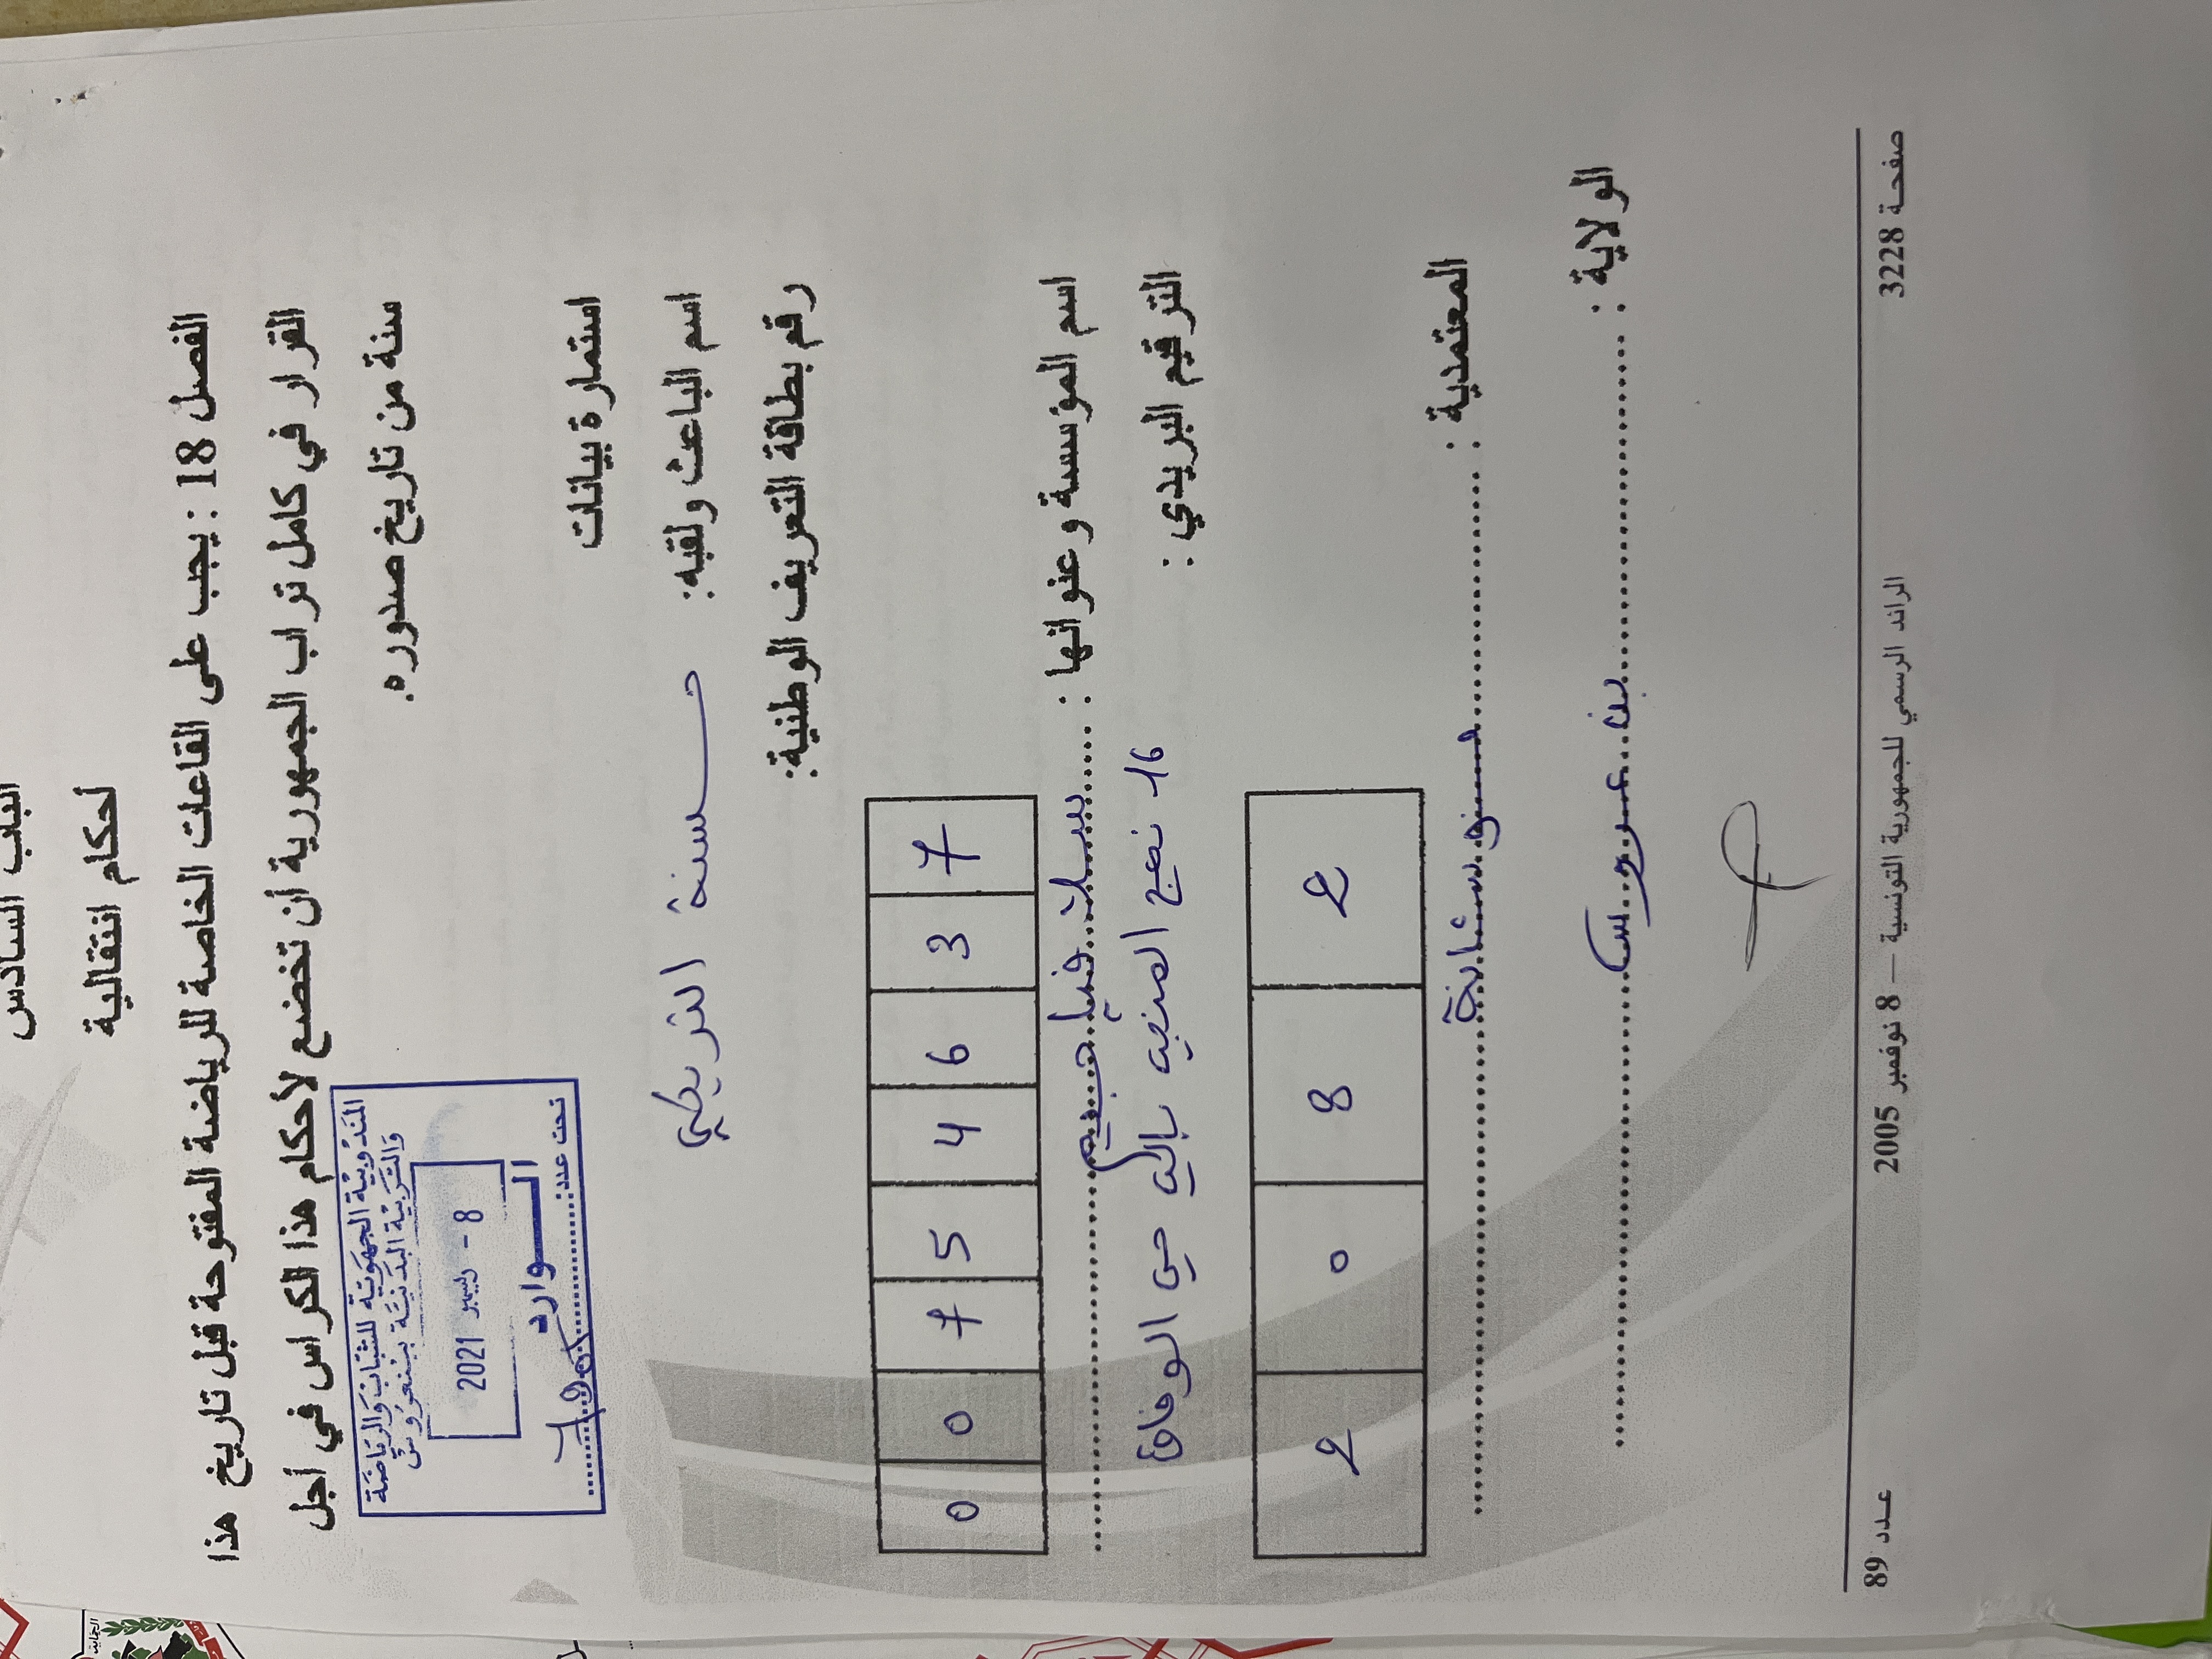 الباب السادس
أحكام انتقالية
الفصل 18 : يجب على القاعات الخاصة للرياضة المفتوحة قبل تاريخ هذا
القرار في كامل تراب الجمهورية أن تخضع لأحكام هذا الكراس في أجل
سنة من تاريخ صدوره.
المندوبية الجهوية للشباب والرياضة
والتربية البدنية ببنعروس
8 - ديسمبر 2021
الـوارد
تحت عدد:
استمارة بيانات
اسم الباعث ولقبه: حسنة التريكي
رقم بطاقة التعريف الوطنية:
0 0 7 5 4 6 3 7
اسم المؤسسة وعنوانها : جيم
16 نهج المنجي بالي حي الوفاق
الترقيم البريدي :
2 0 8 2
المعتمدية : فوشانة
الولاية : بن عروس
عدد 89 الرائد الرسمي للجمهورية التونسية — 8 نوفمبر 2005 صفحة 3228